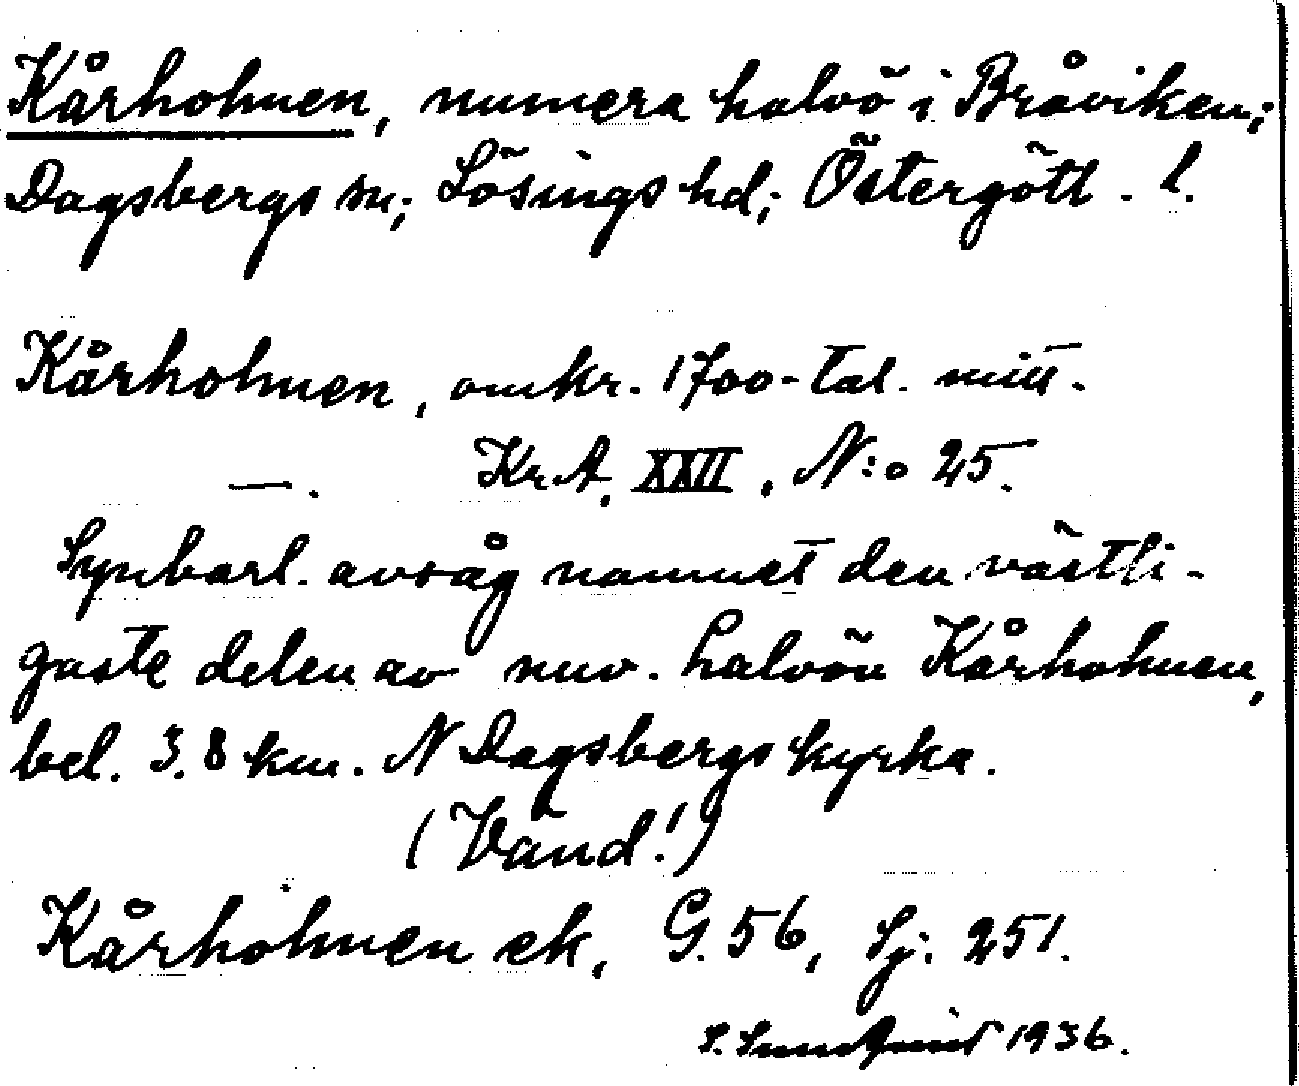 Kårholmen, numera halvö i Bråviken;
Dagsbergs sn; Lösings hd; Östergötl. l.
Kårholmen, omkr. 1700-tal. mitt.
—. Kr.A. XXII, N:o 25.
Synbarl. avsåg namnet den västli-
gaste delen av nuv. halvön Kårholmen,
bel. 3.8 km. N Dagsbergs kyrka.
(Vänd!)
Kårholmen ek, G. 56, Sj: 251.
S. Sundquist 1936.